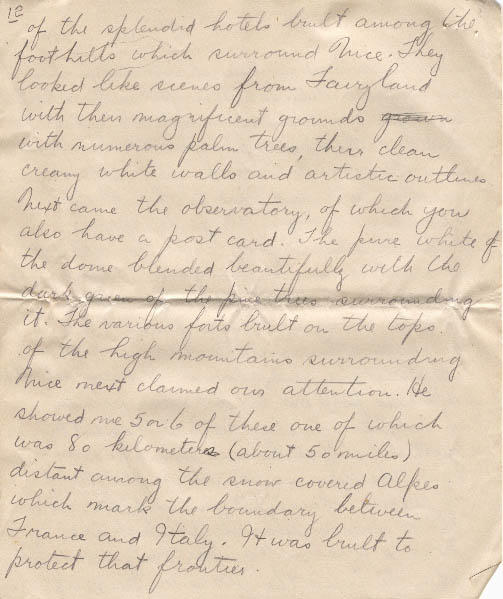 12
of the splendid hotels built among the
foothills which surround Nice. They
looked like scenes from Fairyland
with their magnificent grounds grown
with numerous palm trees, their clean
creamy white walls and artistic outlines.
Next came the observatory, of which you
also have a post card. The pure white of
the dome blended beautifully with the
dark green of the pine trees surrounding
it. The various forts built on the tops
of the high mountains surrounding
Nice next claimed our attention. He
showed me 5 or 6 of these one of which
was 80 kilometers (about 50 miles)
distant among the snow covered Alpes
which mark the boundary between
France and Italy. It was built to
protect that frontier.